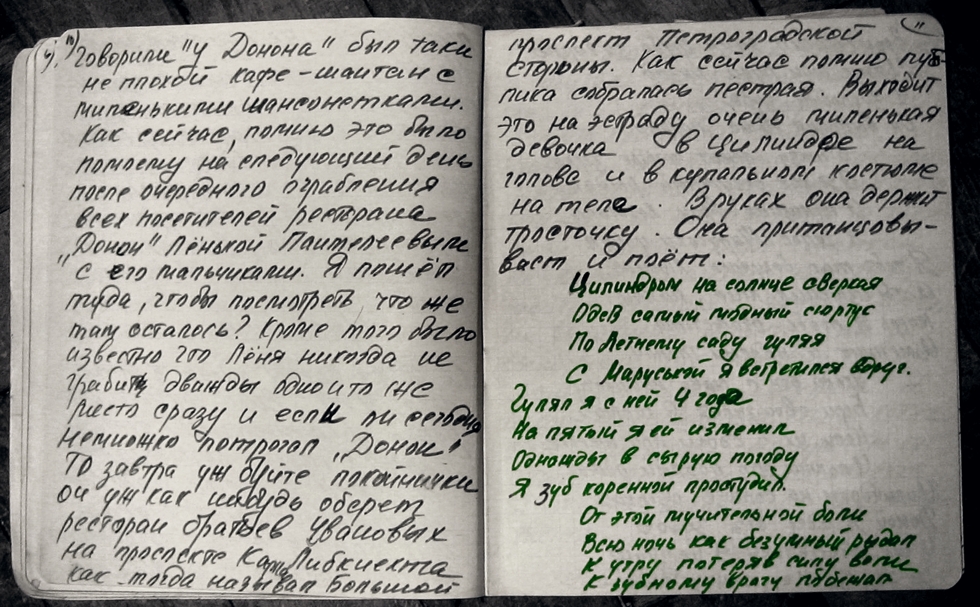 10
9). Говорили "у Донона" был таки
не плохой кафе-шантан с
миленькими шансонетками.
Как сейчас, помню это было
помоему на следующий день
после очередного ограбления
всех посетителей ресторана
"Донон" Лёнькой Пантелеевым
с его мальчиками. Я пошёл
туда, чтобы посмотреть, что же
там осталось? Кроме того было
известно что Лёня никогда не
грабить дважды одно и то же
место сразу и если он сегодня
немножко потрогал "Донон"
То завтра уж буйте покойнички
он уж как нибудь оберет
ресторан братьев Ивановых
на проспекте Карла Либкнехта
как тогда называл Большой
11
проспект Петроградской
стороны. Как сейчас помню пуб-
лика собралась пестрая. Выходит
это на эстраду очень миленькая
девочка в цилиндре на
голове и в купальном костюме
на теле. В руках она держит
тросточку. Она пританцовы-
вает и поёт:
Цилиндром на солнце сверкая
Одев самый модный сюртук
По Летнему саду гуляя
С Маруськой я встретился вдруг.
Гулял я с ней 4 года
На пятый я ей изменил
Однажды в сырую погоду
Я зуб коренной простудил.
От этой мучительной боли
Всю ночь как безумный рыдал
К утру потеряв силу воли
К зубному врачу побежал